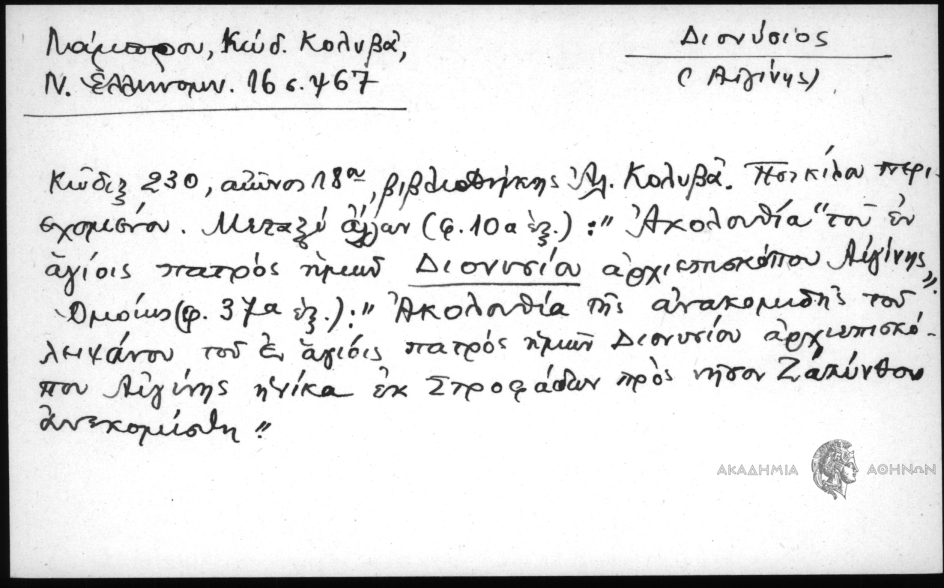 Λάμπρου, Κώδ. Κολυβᾶ,
Ν. Ἑλληνομν. 16 σ. 467
Διονύσιος
(Αἰγίνης)
Κῶδιξ 230, αἰῶνος 18ου, βιβλιοθήκης Ἀλ. Κολυβᾶ. Ποικίλου περι-
εχομένου. Μεταξὺ ἄλλων (φ. 10α ἑξ.): "Ἀκολουθία" τοῦ ἐν
ἁγίοις πατρὸς ἡμῶν Διονυσίου ἀρχιεπισκόπου Αἰγίνης".
Ὁμοίως (φ. 37α ἑξ.): "Ἀκολουθία τῆς ἀνακομιδῆς τοῦ
λειψάνου τοῦ ἐν ἁγίοις πατρὸς ἡμῶν Διονυσίου ἀρχιεπισκό-
που Αἰγίνης ἡνίκα ἐκ Στροφάδων πρὸς νῆσον Ζάκυνθον
ἀνεκομίσθη"
ΑΚΑΔΗΜΙΑ ΑΘΗΝΩΝ